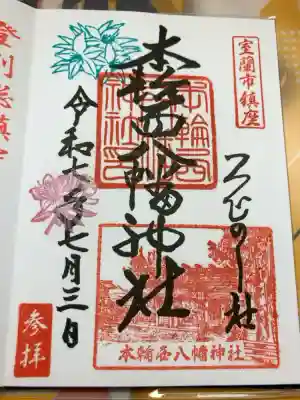 室蘭市鎮座
本輪西八幡神社
令和七年七月三日
参拝
本輪西八幡神社
登別総鎮